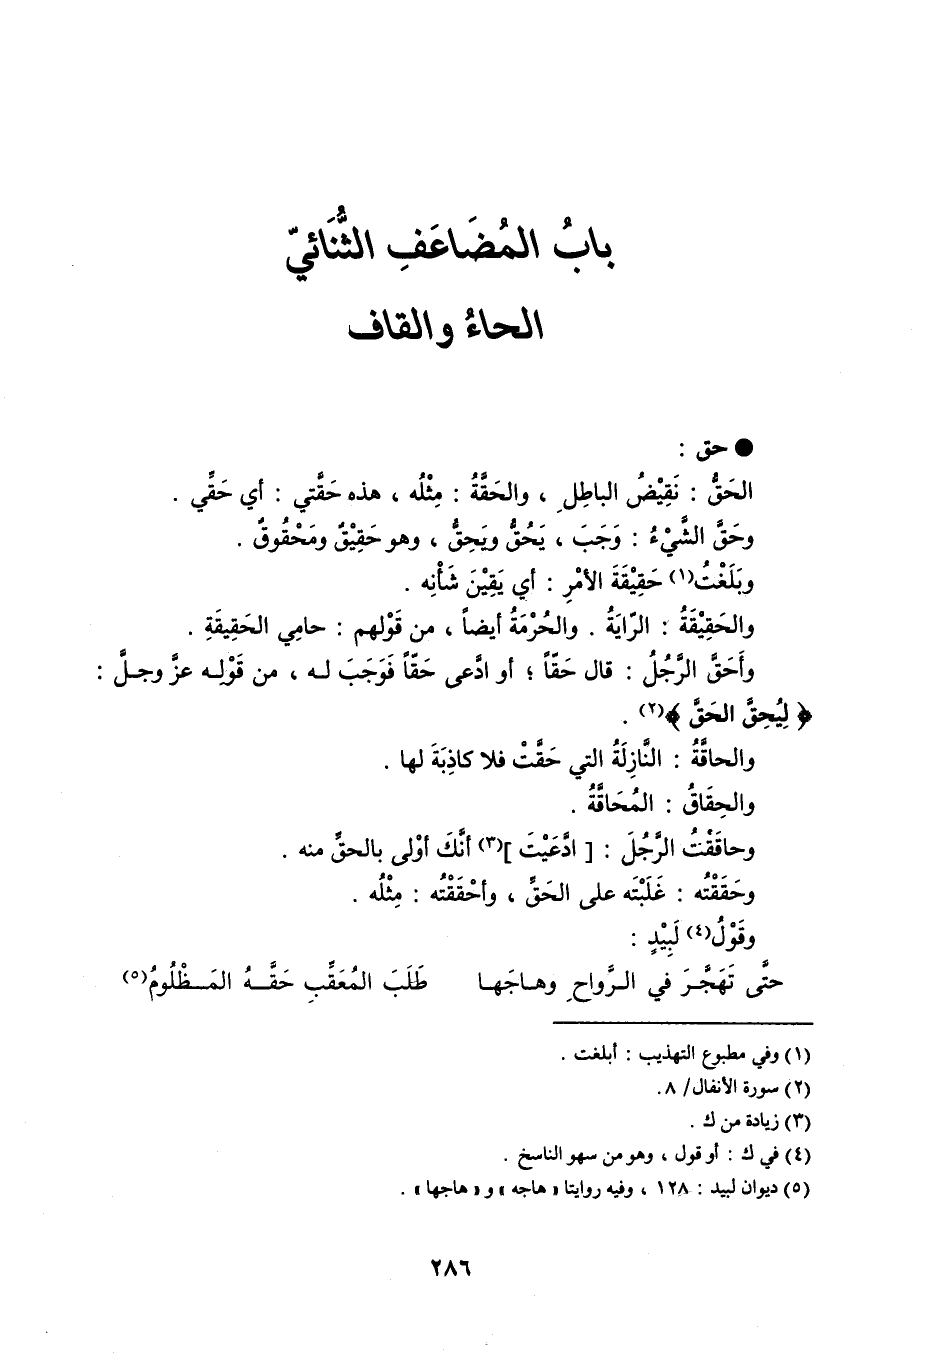 بابُ المُضَاعَفِ الثُّنَائيّ
الحاءُ والقاف
● حق :
الحَقُّ : نَقِيْضُ الباطِلِ ، والحَقَّةُ : مِثْلُه ، هذه حَقَّتي : أي حَقِّي .
وحَقَّ الشَّيْءُ : وَجَبَ ، يَحُقُّ ويَحِقُّ ، وهو حَقِيْقٌ ومَحْقُوقٌ .
وبَلَغْتُ(١) حَقِيْقَةَ الأمْرِ : أي يَقِيْنَ شَأْنِه .
والحَقِيْقَةُ : الرّايَةُ . والحُرْمَةُ أيضاً ، من قَوْلهم : حامِي الحَقِيقَةِ .
وأَحَقَّ الرَّجُلُ : قال حَقّاً ؛ أو ادَّعى حَقّاً فَوَجَبَ له ، من قَوْلِه عزَّ وجلَّ :
﴿ لِيُحِقَّ الحَقَّ ﴾(٢) .
والحاقَّةُ : النَّازِلَةُ التي حَقَّتْ فلا كاذِبَةَ لها .
والحِقَاقُ : المُحَاقَّةُ .
وحاقَقْتُ الرَّجُلَ : [ ادَّعَيْتَ ](٣) أنَّكَ أوْلى بالحقِّ منه .
وحَقَقْتُه : غَلَبْتَه على الحَقِّ ، وأحْقَقْتُه : مِثْلُه .
وقَوْلُ(٤) لَبِيْدٍ :
حتَّى تَهَجَّرَ في الرَّواحِ وهاجَها طَلَبَ المُعَقِّبِ حَقَّهُ المَظْلُومُ(٥)
(١) وفي مطبوع التهذيب : أبلغت .
(٢) سورة الأنفال/ ٨.
(٣) زيادة من ك .
(٤) في ك : أو قول ، وهو من سهو الناسخ .
(٥) ديوان لبيد : ١٢٨ ، وفيه روايتا « هاجه » و « هاجها » .
٢٨٦